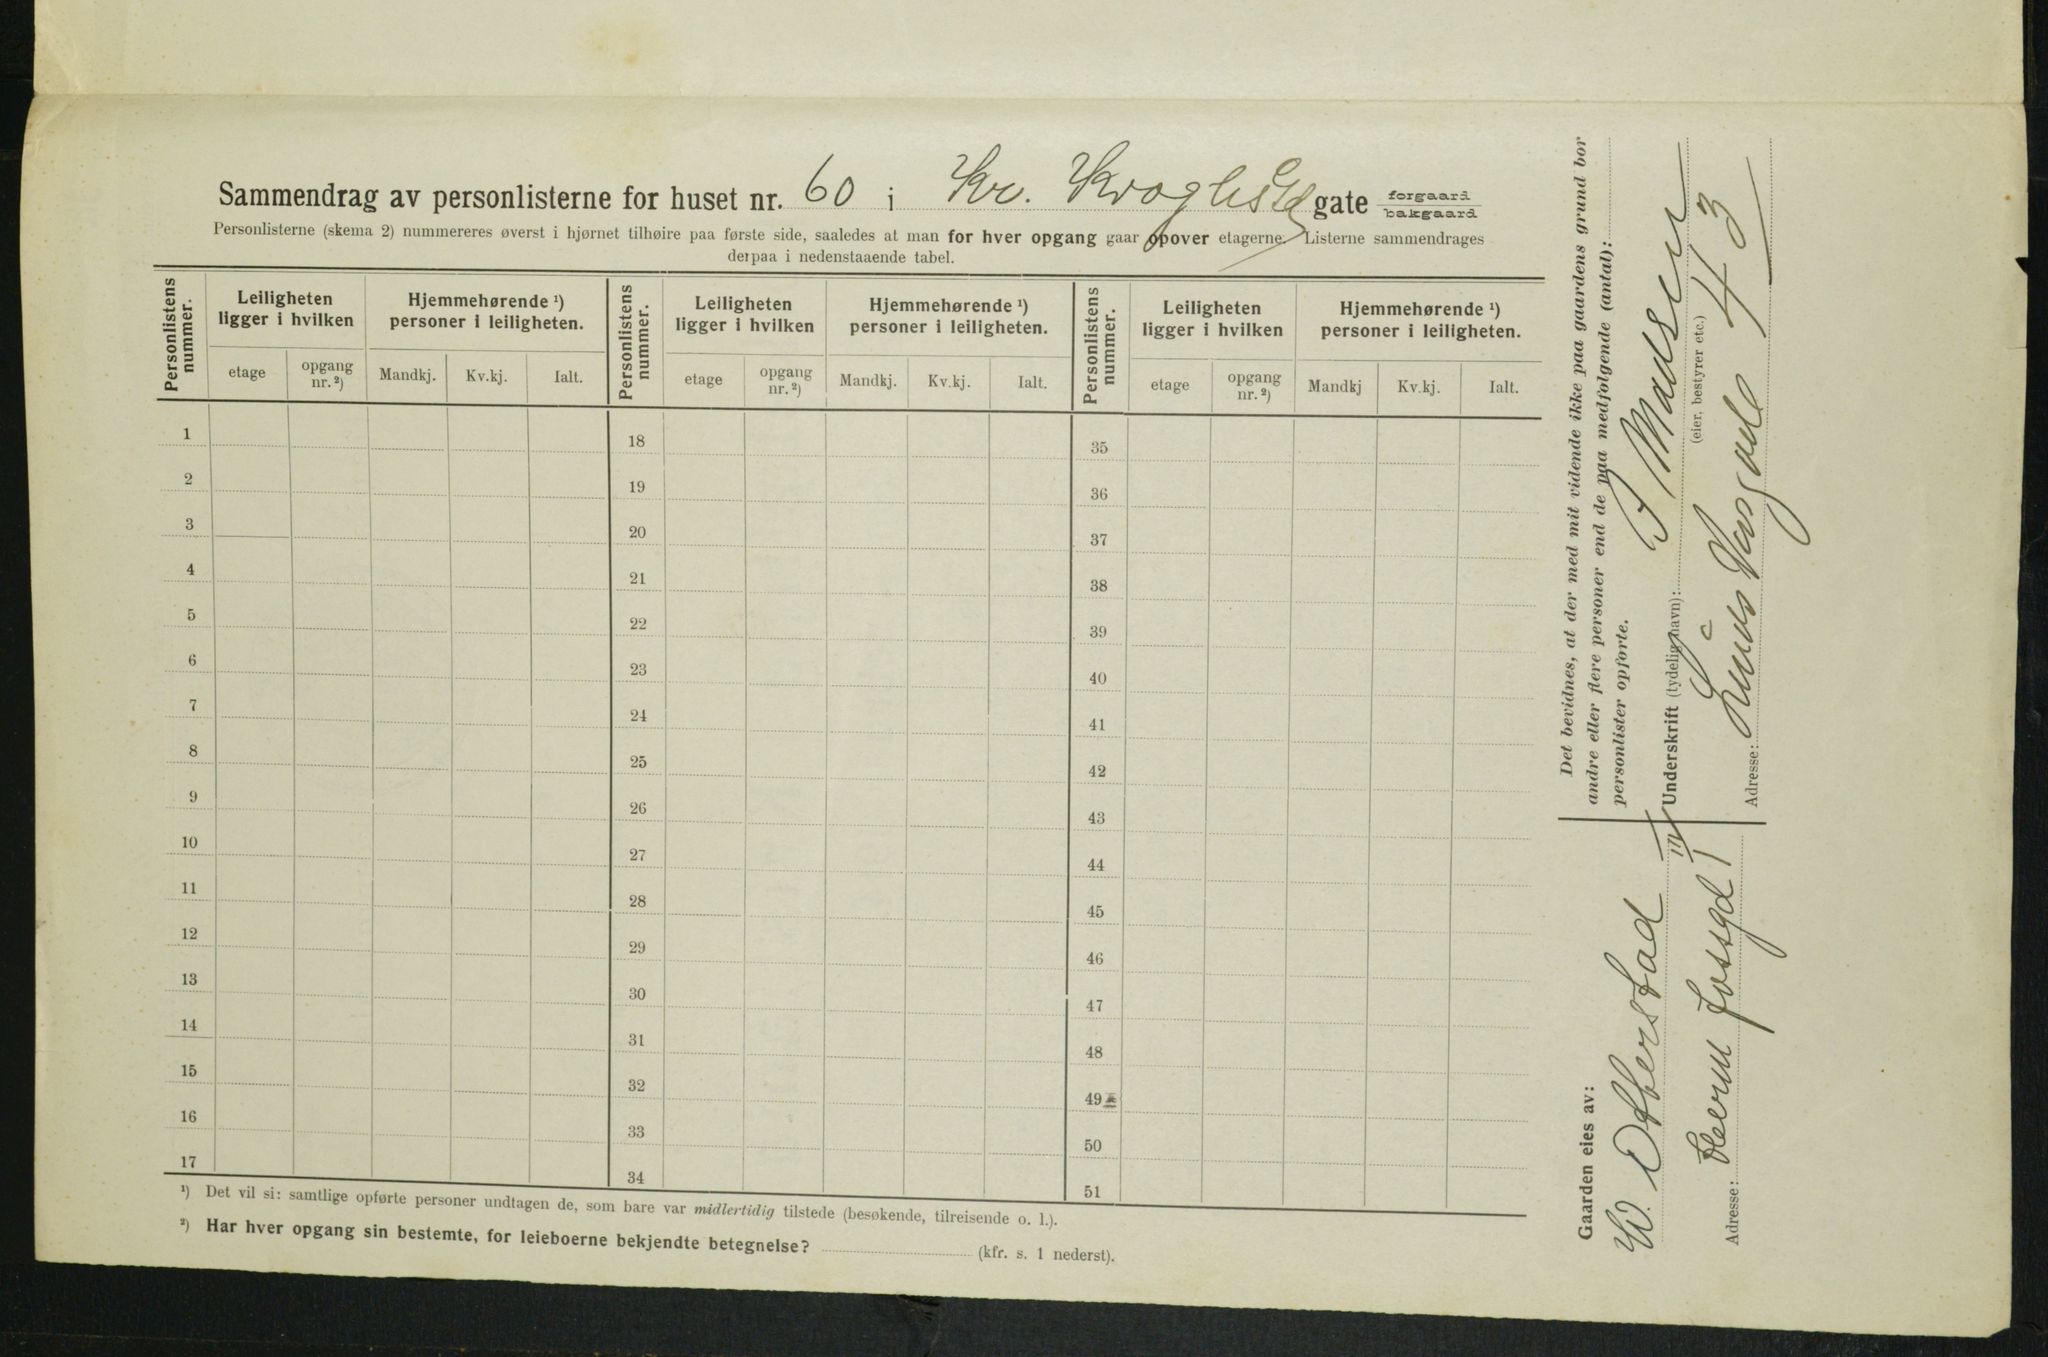 Sammendrag av personlisterne for huset nr. 60 i Kr. Kroghs Gd gate forgaard bakgaard
Personlisterne (skema 2) nummereres øverst i hjørnet tilhøire paa første side, saaledes at man for hver opgang gaar opover etagerne. Listerne sammendrages
derpaa i nedenstaaende tabel.
Personlistens nummer. Leiligheten ligger i hvilken Hjemmehørende ¹) personer i leiligheten. Personlistens nummer. Leiligheten ligger i hvilken Hjemmehørende ¹) personer i leiligheten. Personlistens nummer. Leiligheten ligger i hvilken Hjemmehørende ¹) personer i leiligheten.
etage opgang nr. ²) Mandkj. Kv.kj. Ialt. etage opgang nr. ²) Mandkj. Kv.kj. Ialt. etage opgang nr. ²) Mandkj Kv.kj. Ialt.
1 18 35
2 19 36
3 20 37
4 21 38
5 22 39
6 23 40
7 24 41
8 25 42
9 26 43
10 27 44
11 28 45
12 29 46
13 30 47
14 31 48
15 32 49
16 33 50
17 34 51
¹) Det vil si: samtlige opførte personer undtagen de, som bare var midlertidig tilstede (besøkende, tilreisende o. l.).
²) Har hver opgang sin bestemte, for leieboerne bekjendte betegnelse? (kfr. s. 1 nederst).
Det bevidnes, at der med mit vidende ikke paa gaardens grund bor
andre eller flere personer end de paa medfølgende (antal):
personlister opførte.
Underskrift (tydelig navn): Madsen
(eier, bestyrer etc.)
Adresse: 43
Gaarden eies av:
W. Offerstad
Adresse: fossgd 1